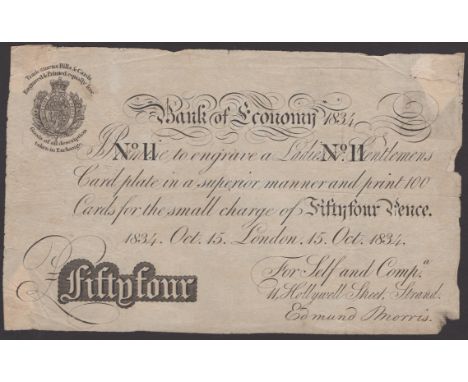 Tradesmens Bills & Cards,
Engraved & Printed equally low
Goods of all description
taken in Exchange.
Bank of Economy 1834
I Promise to engrave a Ladies or Gentlemens
No. 11 No. 11
Card plate in a superior manner and print 100
Cards for the small charge of Fiftyfour Pence.
1834. Oct. 15. London. 15. Oct. 1834.
For Self and Compa.
£ Fiftyfour
11 Hollywell Street, Strand.
Edmund Morris.